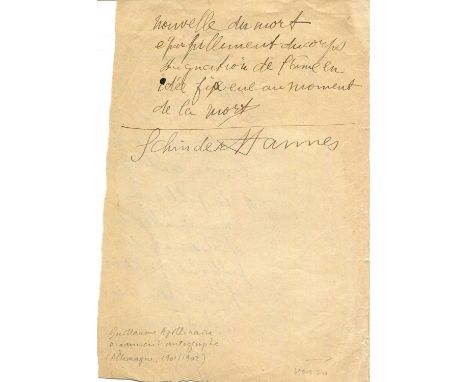 nouvelle du mort
éparpillement du corps
stagnation de l'âme en
idée fixe eue au moment
de la mort
Schinderhannes
Guillaume Apollinaire
manuscrit autographe
(Allemagne, 1901/1902)
verso